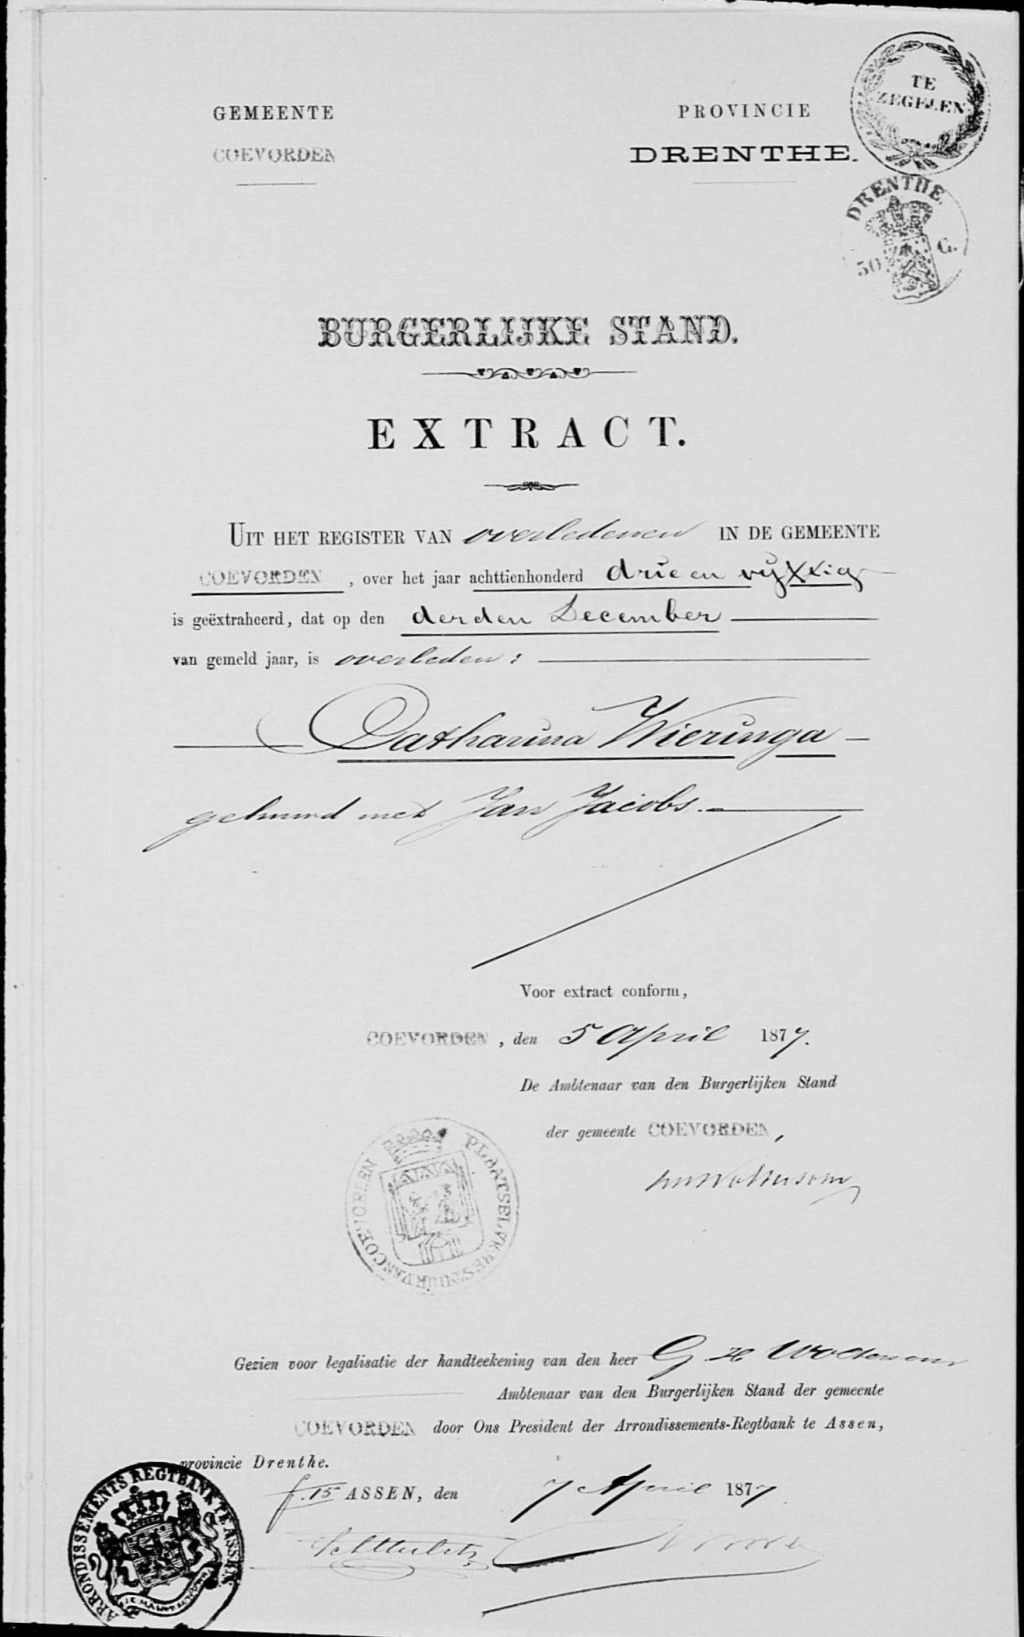 GEMEENTE
COEVORDEN
PROVINCIE
DRENTHE.
TE
ZEGELEN
DRENTHE.
50 G.
BURGERLIJKE STAND.
EXTRACT.
UIT HET REGISTER VAN overledenen IN DE GEMEENTE
COEVORDEN, over het jaar achttienhonderd drie en vijftig
is geëxtraheerd, dat op den derden December
van gemeld jaar, is overleden:
Catharina Wieringa
gehuwd met Jan Jacobs.
Voor extract conform,
COEVORDEN, den 5 April 1877.
De Ambtenaar van den Burgerlijken Stand
der gemeente COEVORDEN,
PLAATSELYK BESTUUR VAN COEVORDEN
Gezien voor legalisatie der handteekening van den heer G H
Ambtenaar van den Burgerlijken Stand der gemeente
COEVORDEN door Ons President der Arrondissements-Regtbank te Assen,
provincie Drenthe.
f. 15 ASSEN, den 7 April 1877
ARRONDISSEMENTS REGTBANK TE ASSEN
JE MAINTIENDRAI